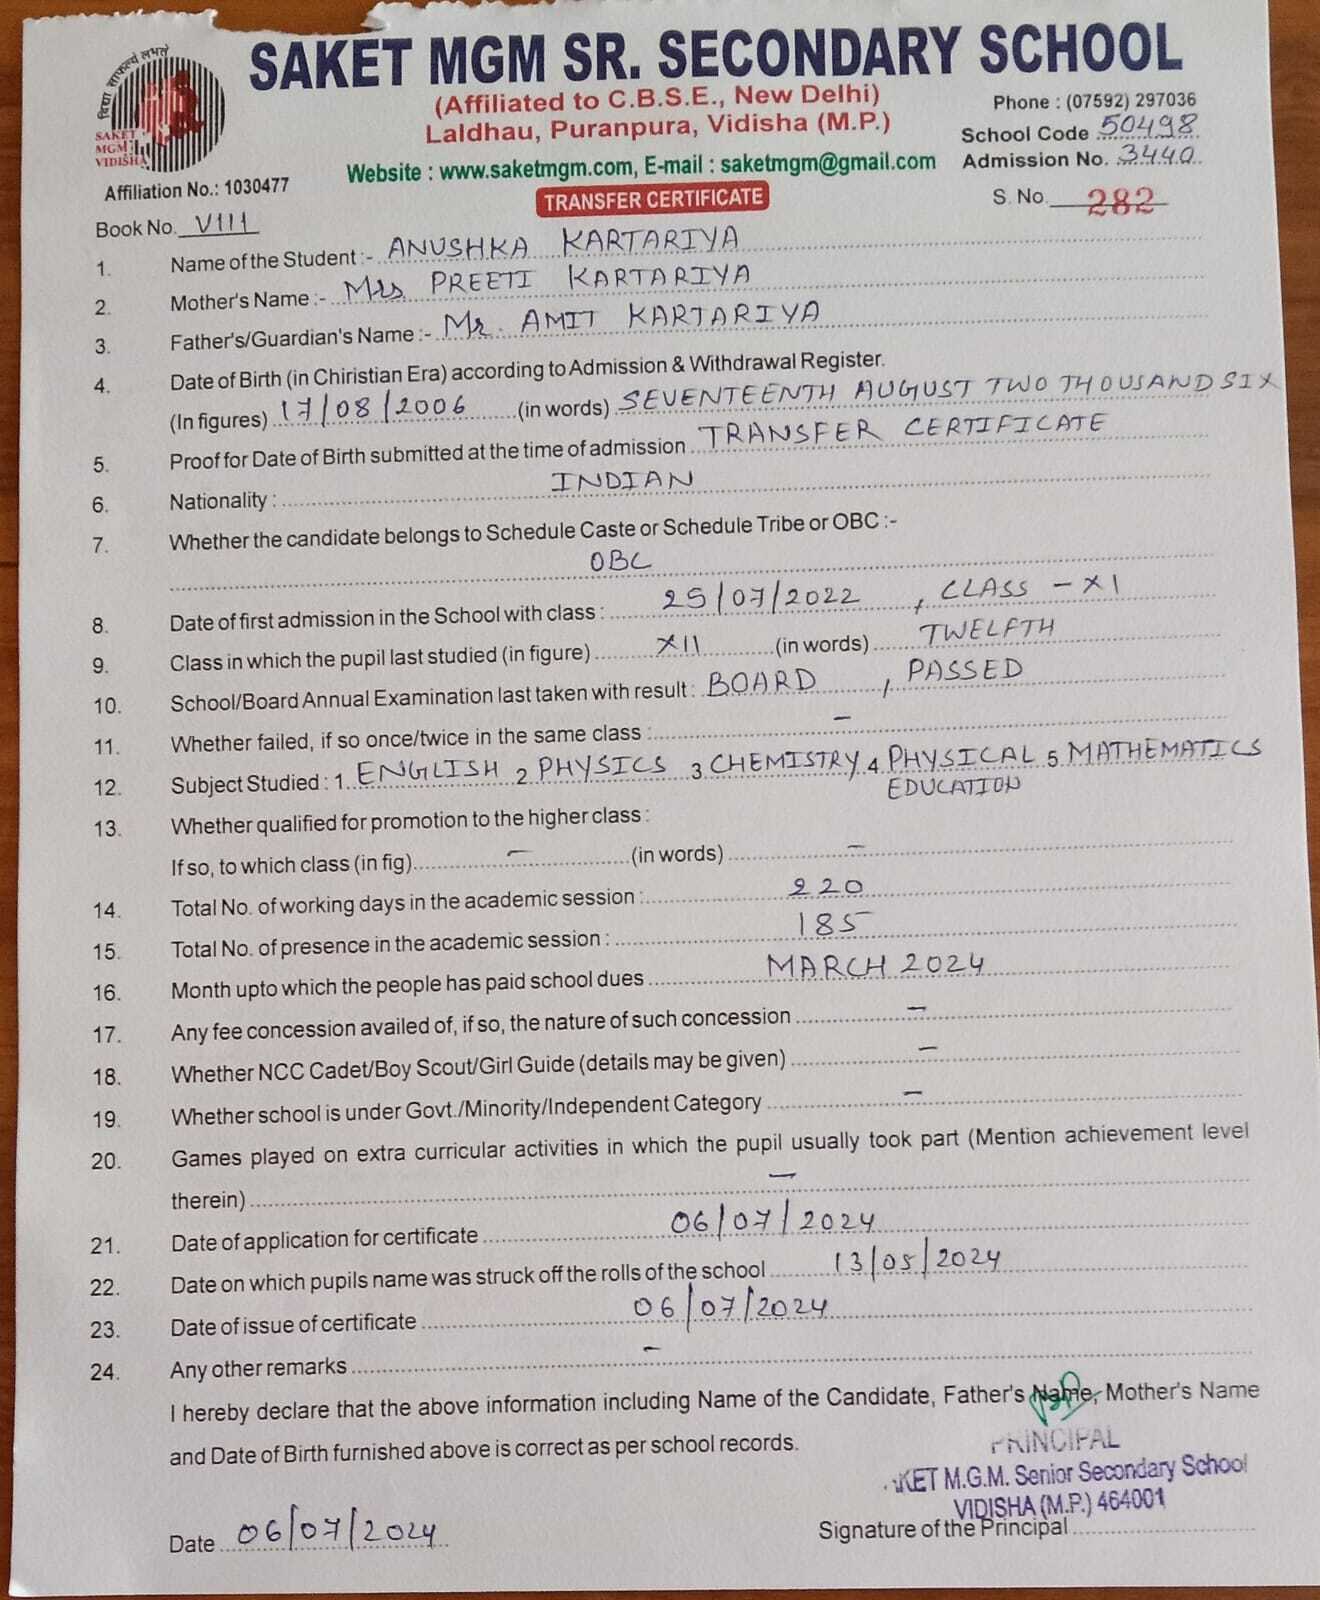 विद्या साफल्यं लभते
SAKET
MGM
VIDISHA
SAKET MGM SR. SECONDARY SCHOOL
(Affiliated to C.B.S.E., New Delhi)
Laldhau, Puranpura, Vidisha (M.P.)
Phone : (07592) 297036
School Code 50498
Website : www.saketmgm.com, E-mail : saketmgm@gmail.com
Admission No. 3440
Affiliation No.: 1030477
TRANSFER CERTIFICATE
S. No. 282
Book No. VIII
1. Name of the Student :- ANUSHKA KARTARIYA
2. Mother's Name :- Mrs PREETI KARTARIYA
3. Father's/Guardian's Name :- Mr. AMIT KARTARIYA
4. Date of Birth (in Chiristian Era) according to Admission & Withdrawal Register.
(In figures) 17/08/2006 (in words) SEVENTEENTH AUGUST TWO THOUSAND SIX
5. Proof for Date of Birth submitted at the time of admission TRANSFER CERTIFICATE
6. Nationality : INDIAN
7. Whether the candidate belongs to Schedule Caste or Schedule Tribe or OBC :-
OBC
8. Date of first admission in the School with class : 25/07/2022 , CLASS - XI
9. Class in which the pupil last studied (in figure) XII (in words) TWELFTH
10. School/Board Annual Examination last taken with result : BOARD , PASSED
11. Whether failed, if so once/twice in the same class : -
12. Subject Studied : 1. ENGLISH 2 PHYSICS 3 CHEMISTRY 4 PHYSICAL 5 MATHEMATICS
EDUCATION
13. Whether qualified for promotion to the higher class :
If so, to which class (in fig) - (in words) -
14. Total No. of working days in the academic session : 220
15. Total No. of presence in the academic session : 185
16. Month upto which the people has paid school dues MARCH 2024
17. Any fee concession availed of, if so, the nature of such concession -
18. Whether NCC Cadet/Boy Scout/Girl Guide (details may be given) -
19. Whether school is under Govt./Minority/Independent Category -
20. Games played on extra curricular activities in which the pupil usually took part (Mention achievement level
therein) -
21. Date of application for certificate 06/07/2024
22. Date on which pupils name was struck off the rolls of the school 13/05/2024
23. Date of issue of certificate 06/07/2024
24. Any other remarks -
I hereby declare that the above information including Name of the Candidate, Father's Name, Mother's Name
and Date of Birth furnished above is correct as per school records.
PRINCIPAL
KET M.G.M. Senior Secondary School
VIDISHA (M.P.) 464001
Date 06/07/2024
Signature of the Principal